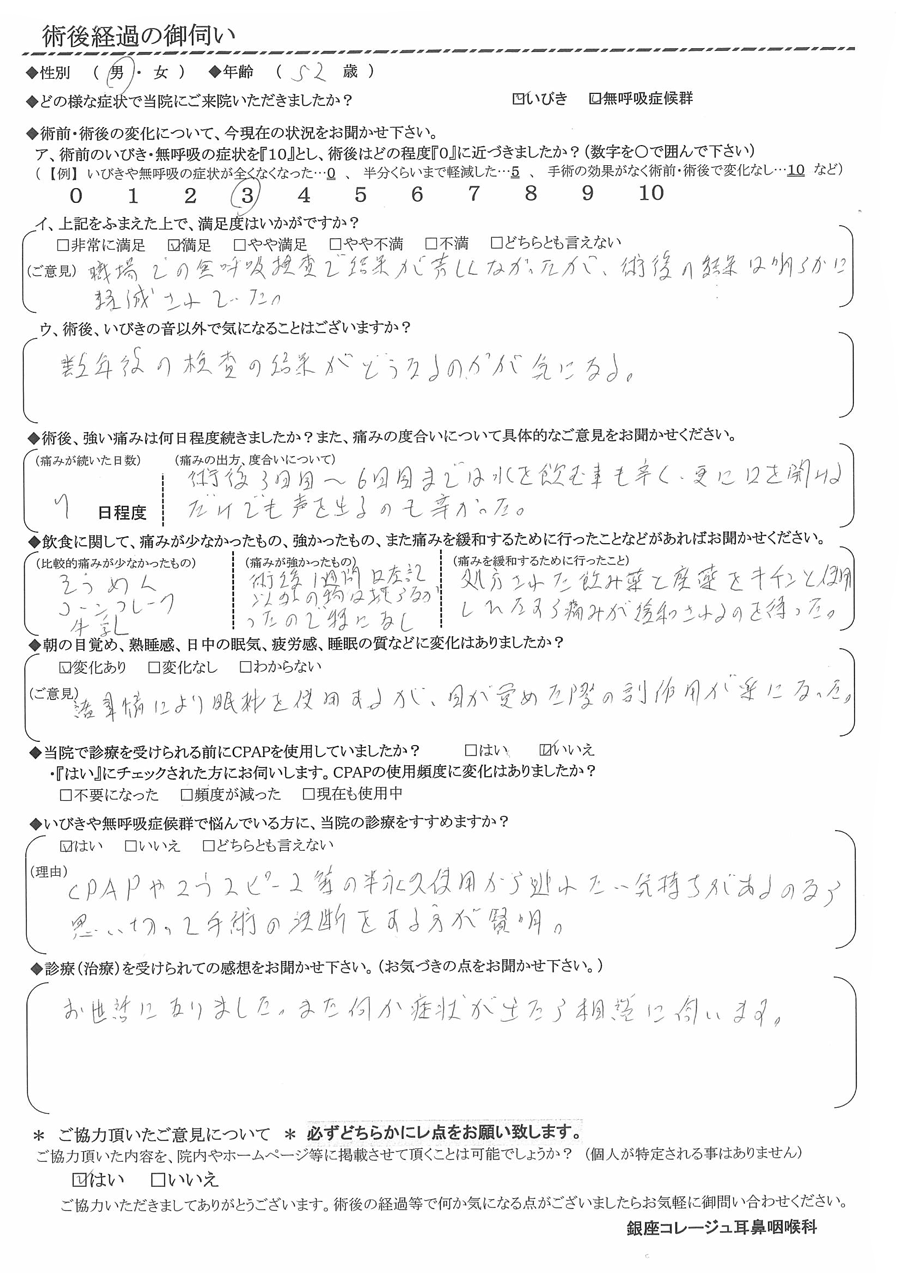 術後経過の御伺い
◆性別 （ 男 ・ 女 ） ◆年齢 （ 52 歳 ）
◆どの様な症状で当院にご来院いただきましたか？ ☑いびき ☑無呼吸症候群
◆術前・術後の変化について、今現在の状況をお聞かせ下さい。
ア、術前のいびき・無呼吸の症状を『10』とし、術後はどの程度『0』に近づきましたか？（数字を○で囲んで下さい）
（【例】 いびきや無呼吸の症状が全くなくなった…0 、 半分くらいまで軽減した…5 、 手術の効果がなく術前・術後で変化なし…10 など）
0 1 2 3 4 5 6 7 8 9 10
イ、上記をふまえた上で、満足度はいかがですか？
□非常に満足 ☑満足 □やや満足 □やや不満 □不満 □どちらとも言えない
（ご意見） 職場での無呼吸検査で結果が芳しくなかったが、術後の結果は明らかに
軽減されていた。
ウ、術後、いびきの音以外で気になることはございますか？
数年後の検査の結果がどうなるのかが気になる。
◆術後、強い痛みは何日程度続きましたか？また、痛みの度合いについて具体的なご意見をお聞かせください。
（痛みが続いた日数） （痛みの出方、度合いについて）
術後3日目～6日目までは水を飲む事も辛く、更に口を開ける
7 日程度 だけでも声を出るのも辛かった。
◆飲食に関して、痛みが少なかったもの、強かったもの、また痛みを緩和するために行ったことなどがあればお聞かせください。
（比較的痛みが少なかったもの） （痛みが強かったもの） （痛みを緩和するために行ったこと）
そうめん 術後1週間は左記 処方された飲み薬と座薬をキチンと使用
コーンフレーク 以外の物は
牛乳 ったので特になし 痛みが緩和されるのを待った。
◆朝の目覚め、熟睡感、日中の眠気、疲労感、睡眠の質などに変化はありましたか？
☑変化あり □変化なし □わからない
（ご意見） 諸事情により眠剤を使用するが、目が覚めた際の副作用が楽になった。
◆当院で診療を受けられる前にCPAPを使用していましたか？ □はい ☑いいえ
・『はい』にチェックされた方にお伺いします。CPAPの使用頻度に変化はありましたか？
□不要になった □頻度が減った □現在も使用中
◆いびきや無呼吸症候群で悩んでいる方に、当院の診療をすすめますか？
☑はい □いいえ □どちらとも言えない
（理由） CPAPやマウスピース等の半永久使用から逃れたい気持ちがあるのなら
思い切って手術の決断をする方が賢明。
◆診療（治療）を受けられての感想をお聞かせ下さい。（お気づきの点をお聞かせ下さい。）
お世話になりました。また何か症状が出たら相談に伺います。
＊ ご協力頂いたご意見について ＊ 必ずどちらかにレ点をお願い致します。
ご協力頂いた内容を、院内やホームページ等に掲載させて頂くことは可能でしょうか？ （個人が特定される事はありません）
☑はい □いいえ
ご協力いただきましてありがとうございます。術後の経過等で何か気になる点がございましたらお気軽に御問い合わせください。
銀座コレージュ耳鼻咽喉科